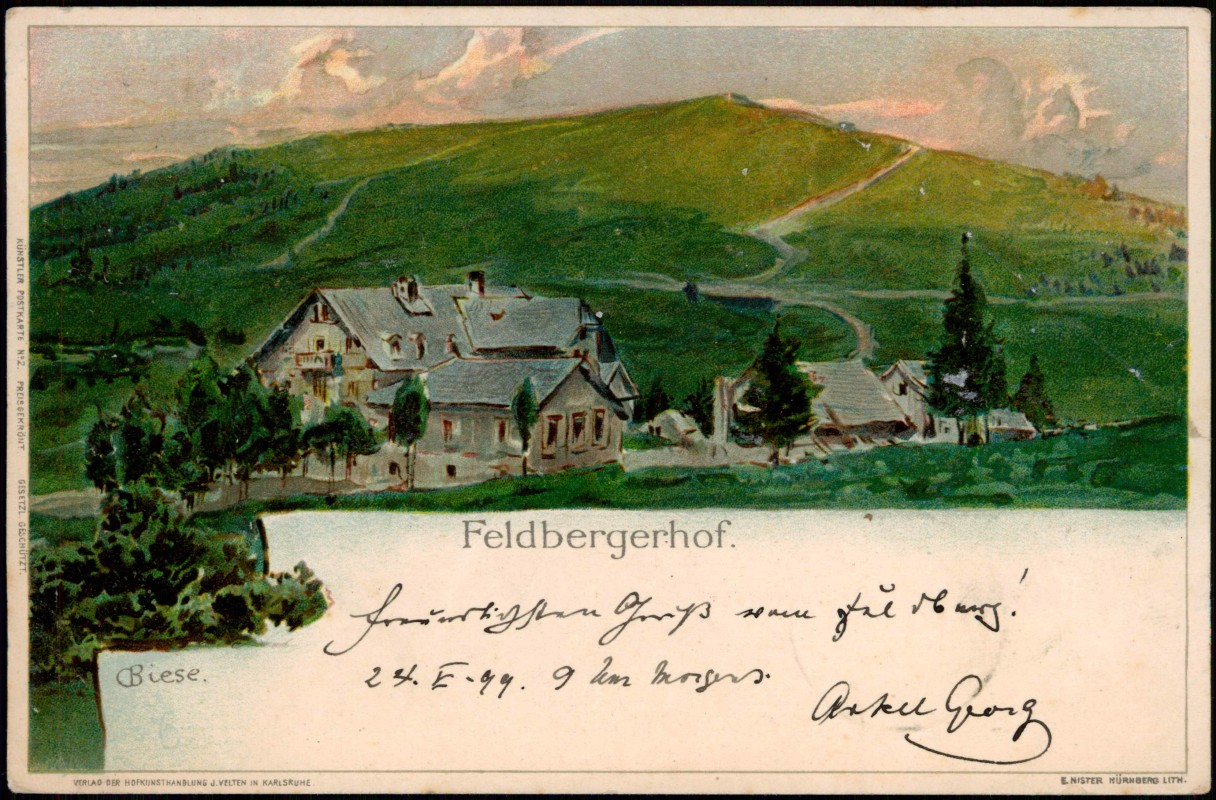 KÜNSTLER POSTKARTE No 2. PREISGEKRÖNT GESETZL. GESCHÜTZT.
Feldbergerhof.
Freundlichsten Gruß vom Feldberg!
24. V. 99. 9 Uhr Morgens.
Onkel Georg
C Biese.
VERLAG DER HOFKUNSTHANDLUNG J. VELTEN IN KARLSRUHE.
E. NISTER NÜRNBERG LITH.